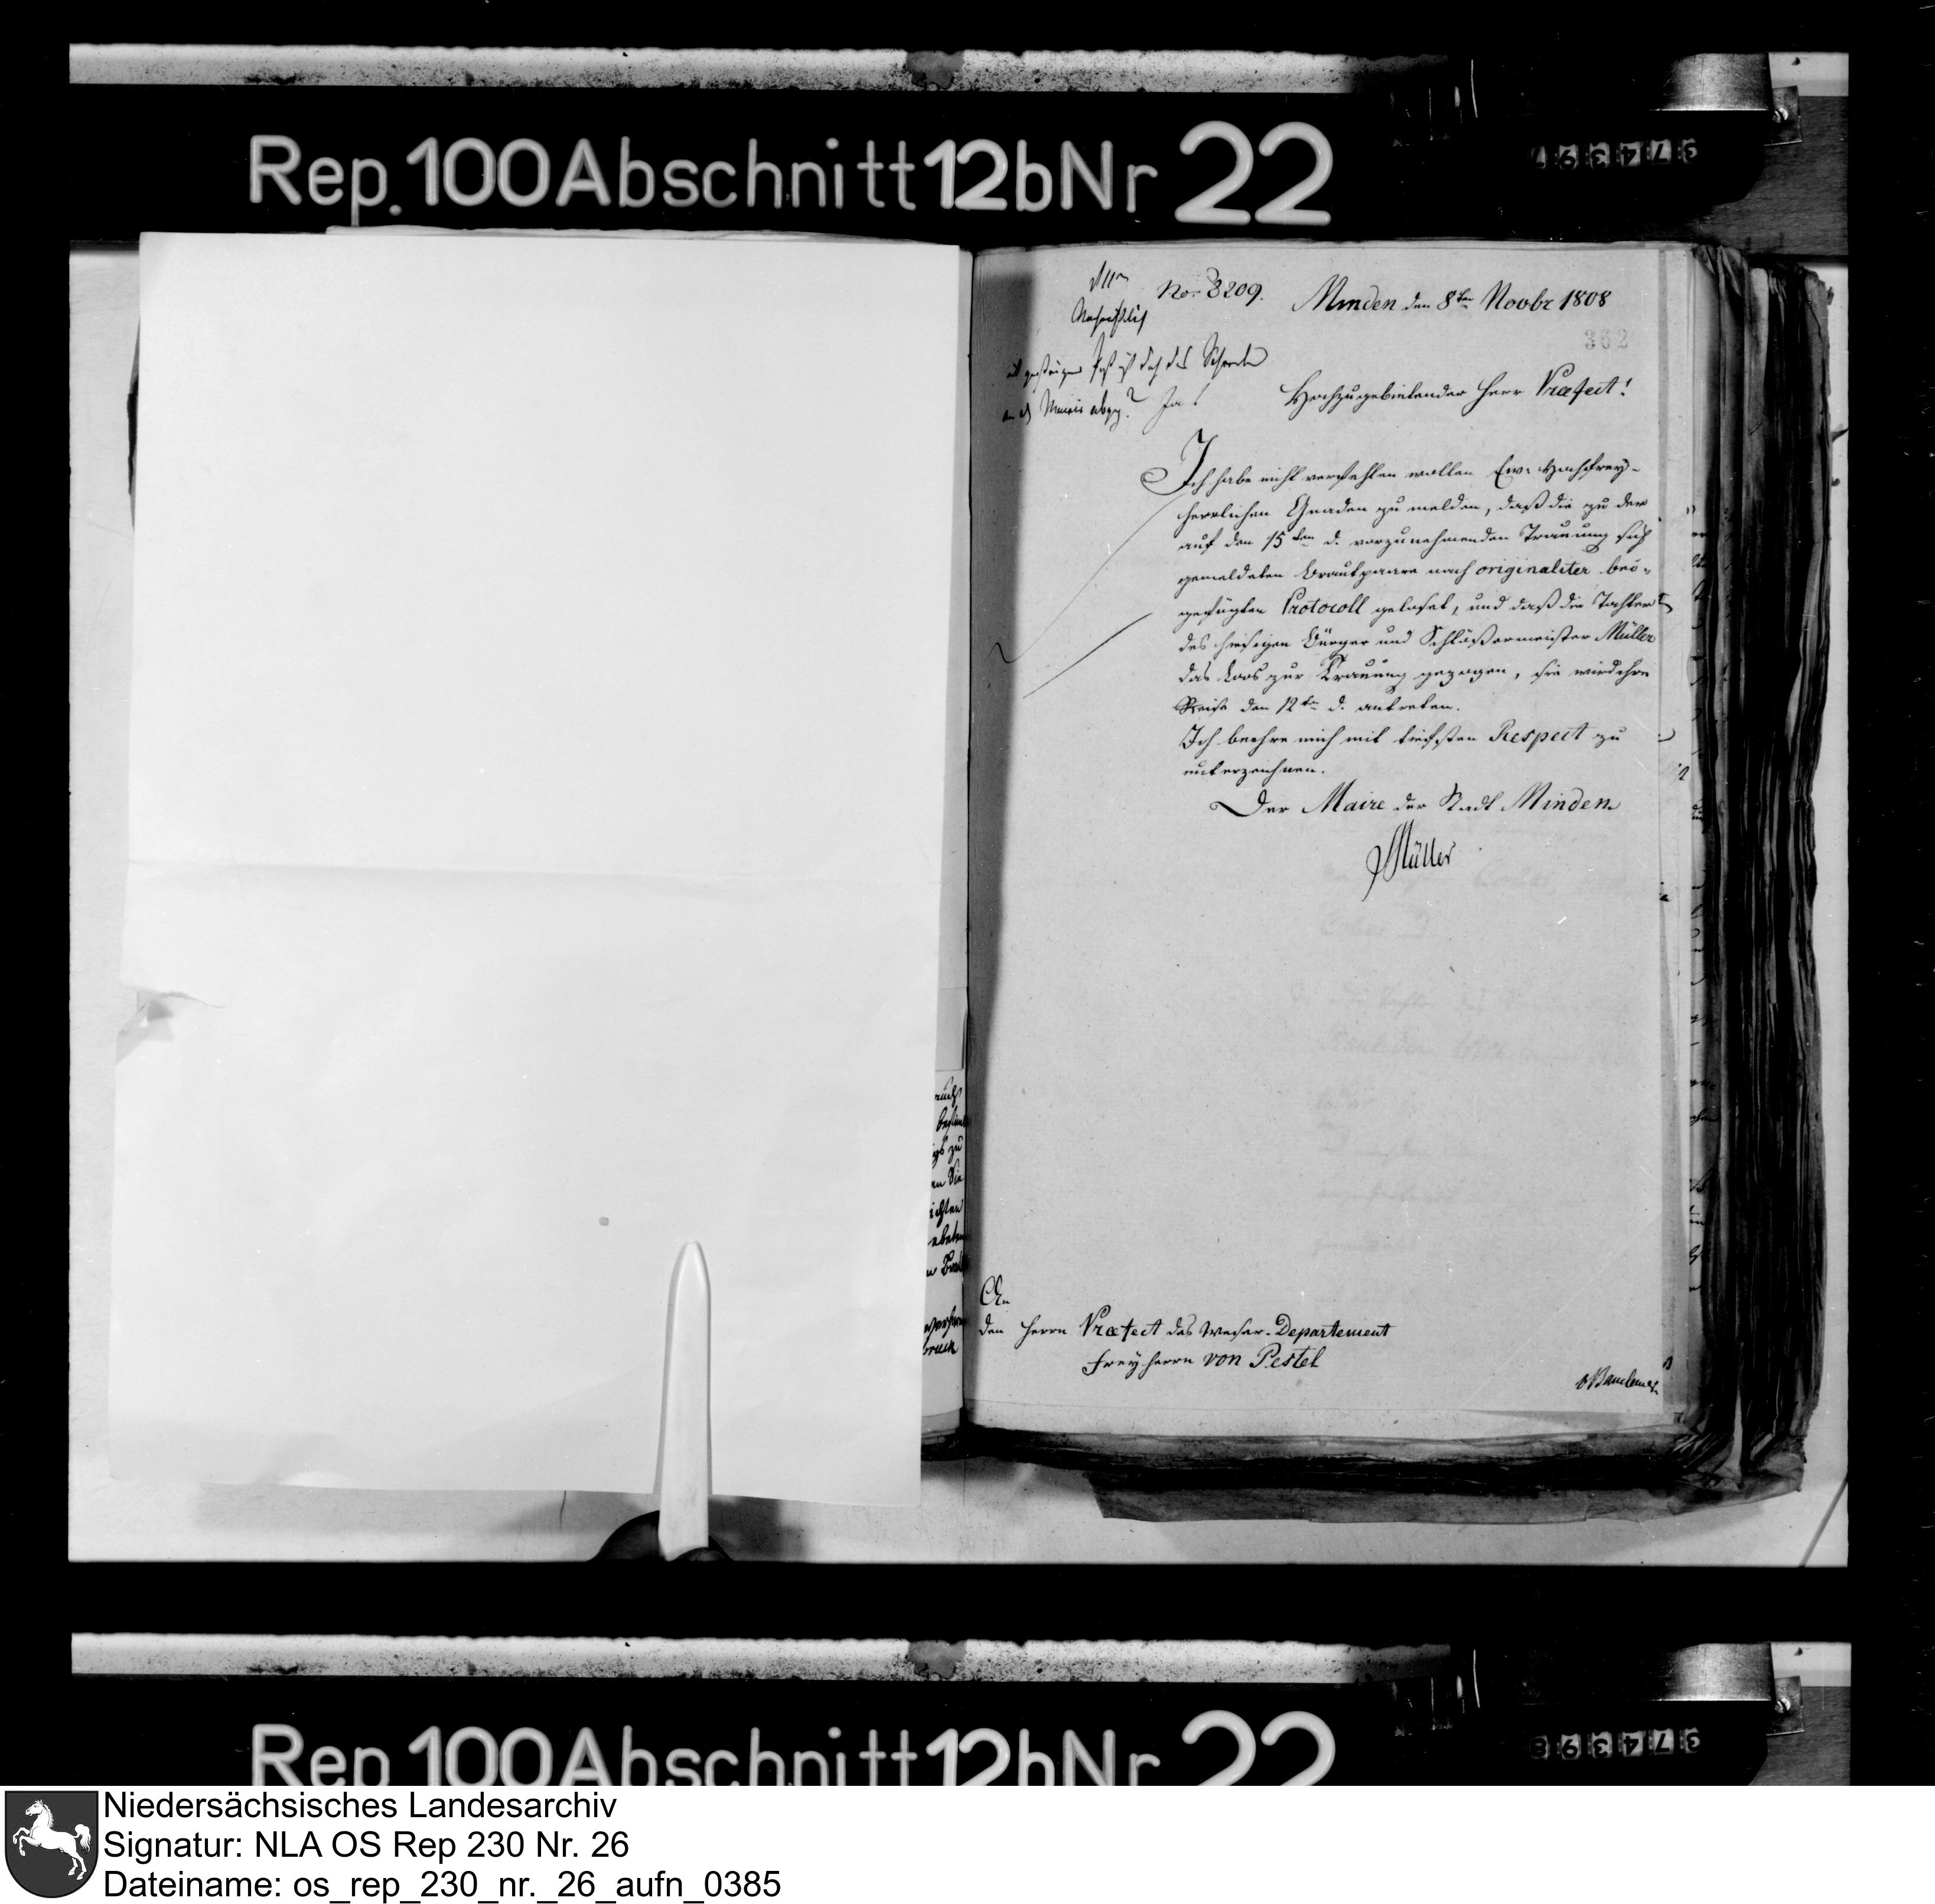 Rep. 100 Abschnitt 12b Nr 22
No. 3209. Minden den 8ten Novbr 1808
362
Ja!
Hochzugebietender Herr Præfect!
Ich habe nicht verfehlen wollen Ew. Hochfrey-
herrlichen Gnaden zu melden, daß die zu der
auf den 15ten d. vorzunehmenden Trauung sich
gemeldeten Brautpaare nach originaliter bei-
gefügten Protocoll geloset, und daß die Tochter
des hiesigen Bürger und Schlößermeister Müller
das Loos zur Trauung gezogen, sie wird ihre
Reise den 12ten d. antreten.
Ich beehre mich mit tiefsten Respect zu
unterzeichnen.
Der Maire der Stadt Minden
Müller
An
den Herrn Præfect des Weser-Departement
Freyherrn von Pestel
Rep 100 Abschnitt 12b Nr 22
Niedersächsisches Landesarchiv
Signatur: NLA OS Rep 230 Nr. 26
Dateiname: os_rep_230_nr._26_aufn_0385